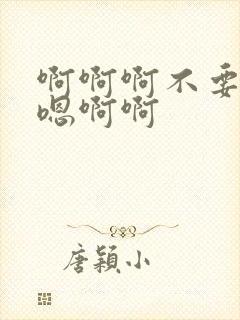 啊啊啊不要
嗯啊啊
唐颖小